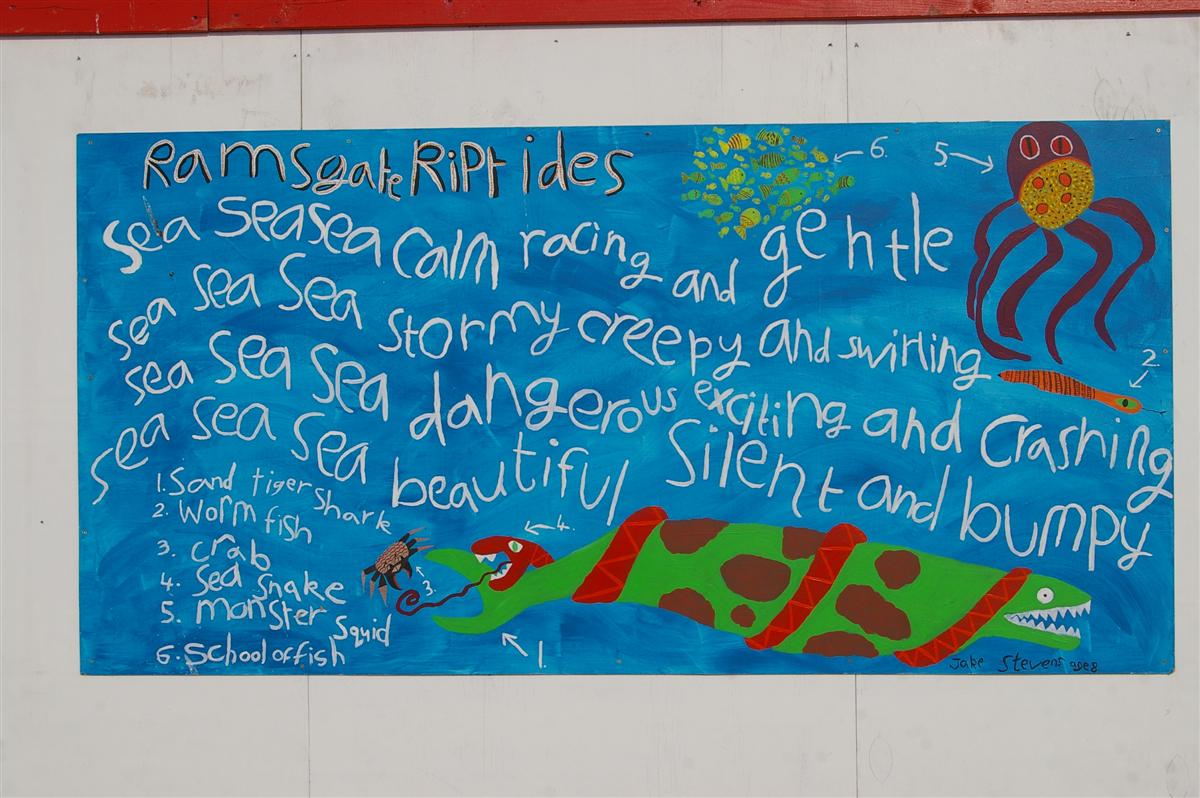 Ramsgate RiPtides
Sea Sea sea calm racing and gentle
sea sea Sea stormy creepy and swirling
sea Sea Sea dangerous exciting and Crashing
sea sea Sea beautiful Silent and bumpy
1. Sand tiger shark
2. Worm fish
3. crab
4. Sea Snake
5. monster Squid
6. School of fish
6.
5
2.
4.
3.
1.
Jake Stevens age 8